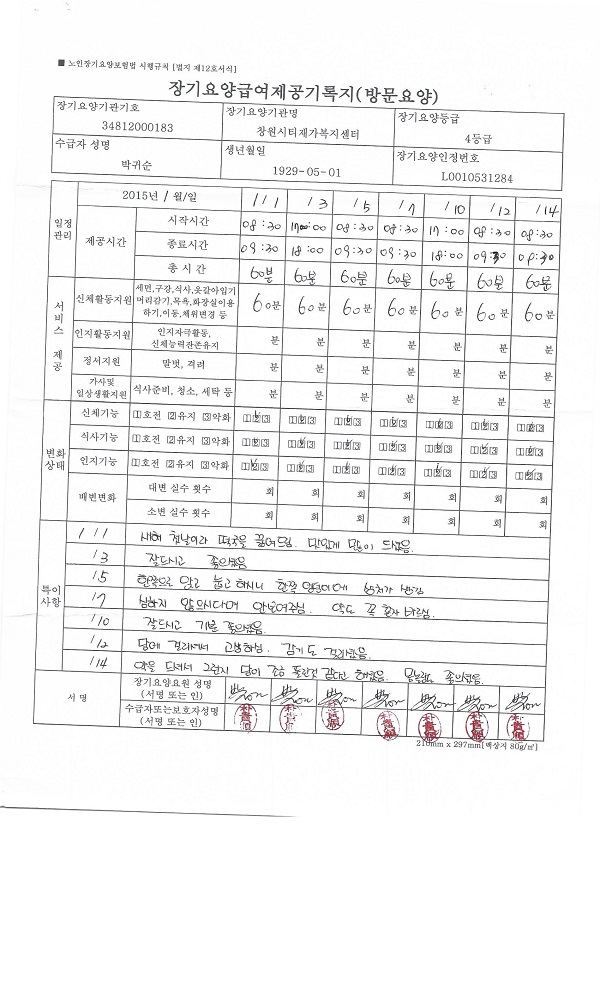 ■ 노인장기요양보험법 시행규칙 [별지 제12호서식]
장기요양급여제공기록지(방문요양)
장기요양기관기호 장기요양기관명 장기요양등급
34812000183 창원시티재가복지센터 4등급
수급자 성명 생년월일 장기요양인정번호
박귀순 1929-05-01 L0010531284
일정관리 2015년 / 월/일 1/1 1/3 1/5 1/7 1/10 1/12 1/14
제공시간 시작시간 08:30 17:00 08:30 08:30 17:00 08:30 08:30
종료시간 09:30 18:00 09:30 09:30 18:00 09:30 09:30
총 시 간 60분 60분 60분 60분 60분 60분 60분
서비스 제공 신체활동지원 세면,구강,식사,옷갈아입기
머리감기,목욕,화장실이용
하기,이동,체위변경 등 60분 60분 60분 60분 60분 60분 60분
인지활동지원 인지자극활동,
신체능력잔존유지 분 분 분 분 분 분 분
정서지원 말벗, 격려 분 분 분 분 분 분 분
가사및
일상생활지원 식사준비, 청소, 세탁 등 분 분 분 분 분 분 분
변화상태 신체기능 1호전 2유지 3악화 123 123 123 123 123 123 123
식사기능 1호전 2유지 3악화 123 123 123 123 123 123 123
인지기능 1호전 2유지 3악화 123 123 123 123 123 123 123
배변변화 대변 실수 횟수 회 회 회 회 회 회 회
소변 실수 횟수 회 회 회 회 회 회 회
특이사항
1/1 새해 첫날이라 떡국을 끓여드림. 맛있게 많이 드셨음.
1/3 잘드시고 좋으셨음
1/5 한쪽으로 앉고 눕고 하시니 한쪽 엉덩이에 상처가 생김
1/7 심하지 않으시다며 안보여주심. 약도 꼭 혼자 바르심.
1/10 잘드시고 기분 좋으셨음.
1/12 담에 걸리셔서 고생하심. 감기도 걸리셨음.
1/14 약을 드셔서 그런지 담이 조금 풀린것 같다고 하셨음. 좋으셨음.
서 명 장기요양요원 성명
(서명 또는 인)
수급자또는보호자성명
(서명 또는 인) 朴貴順 朴貴順 朴貴順 朴貴順 朴貴順 朴貴順 朴貴順
210mm x 297mm[백상지 80g/㎡]